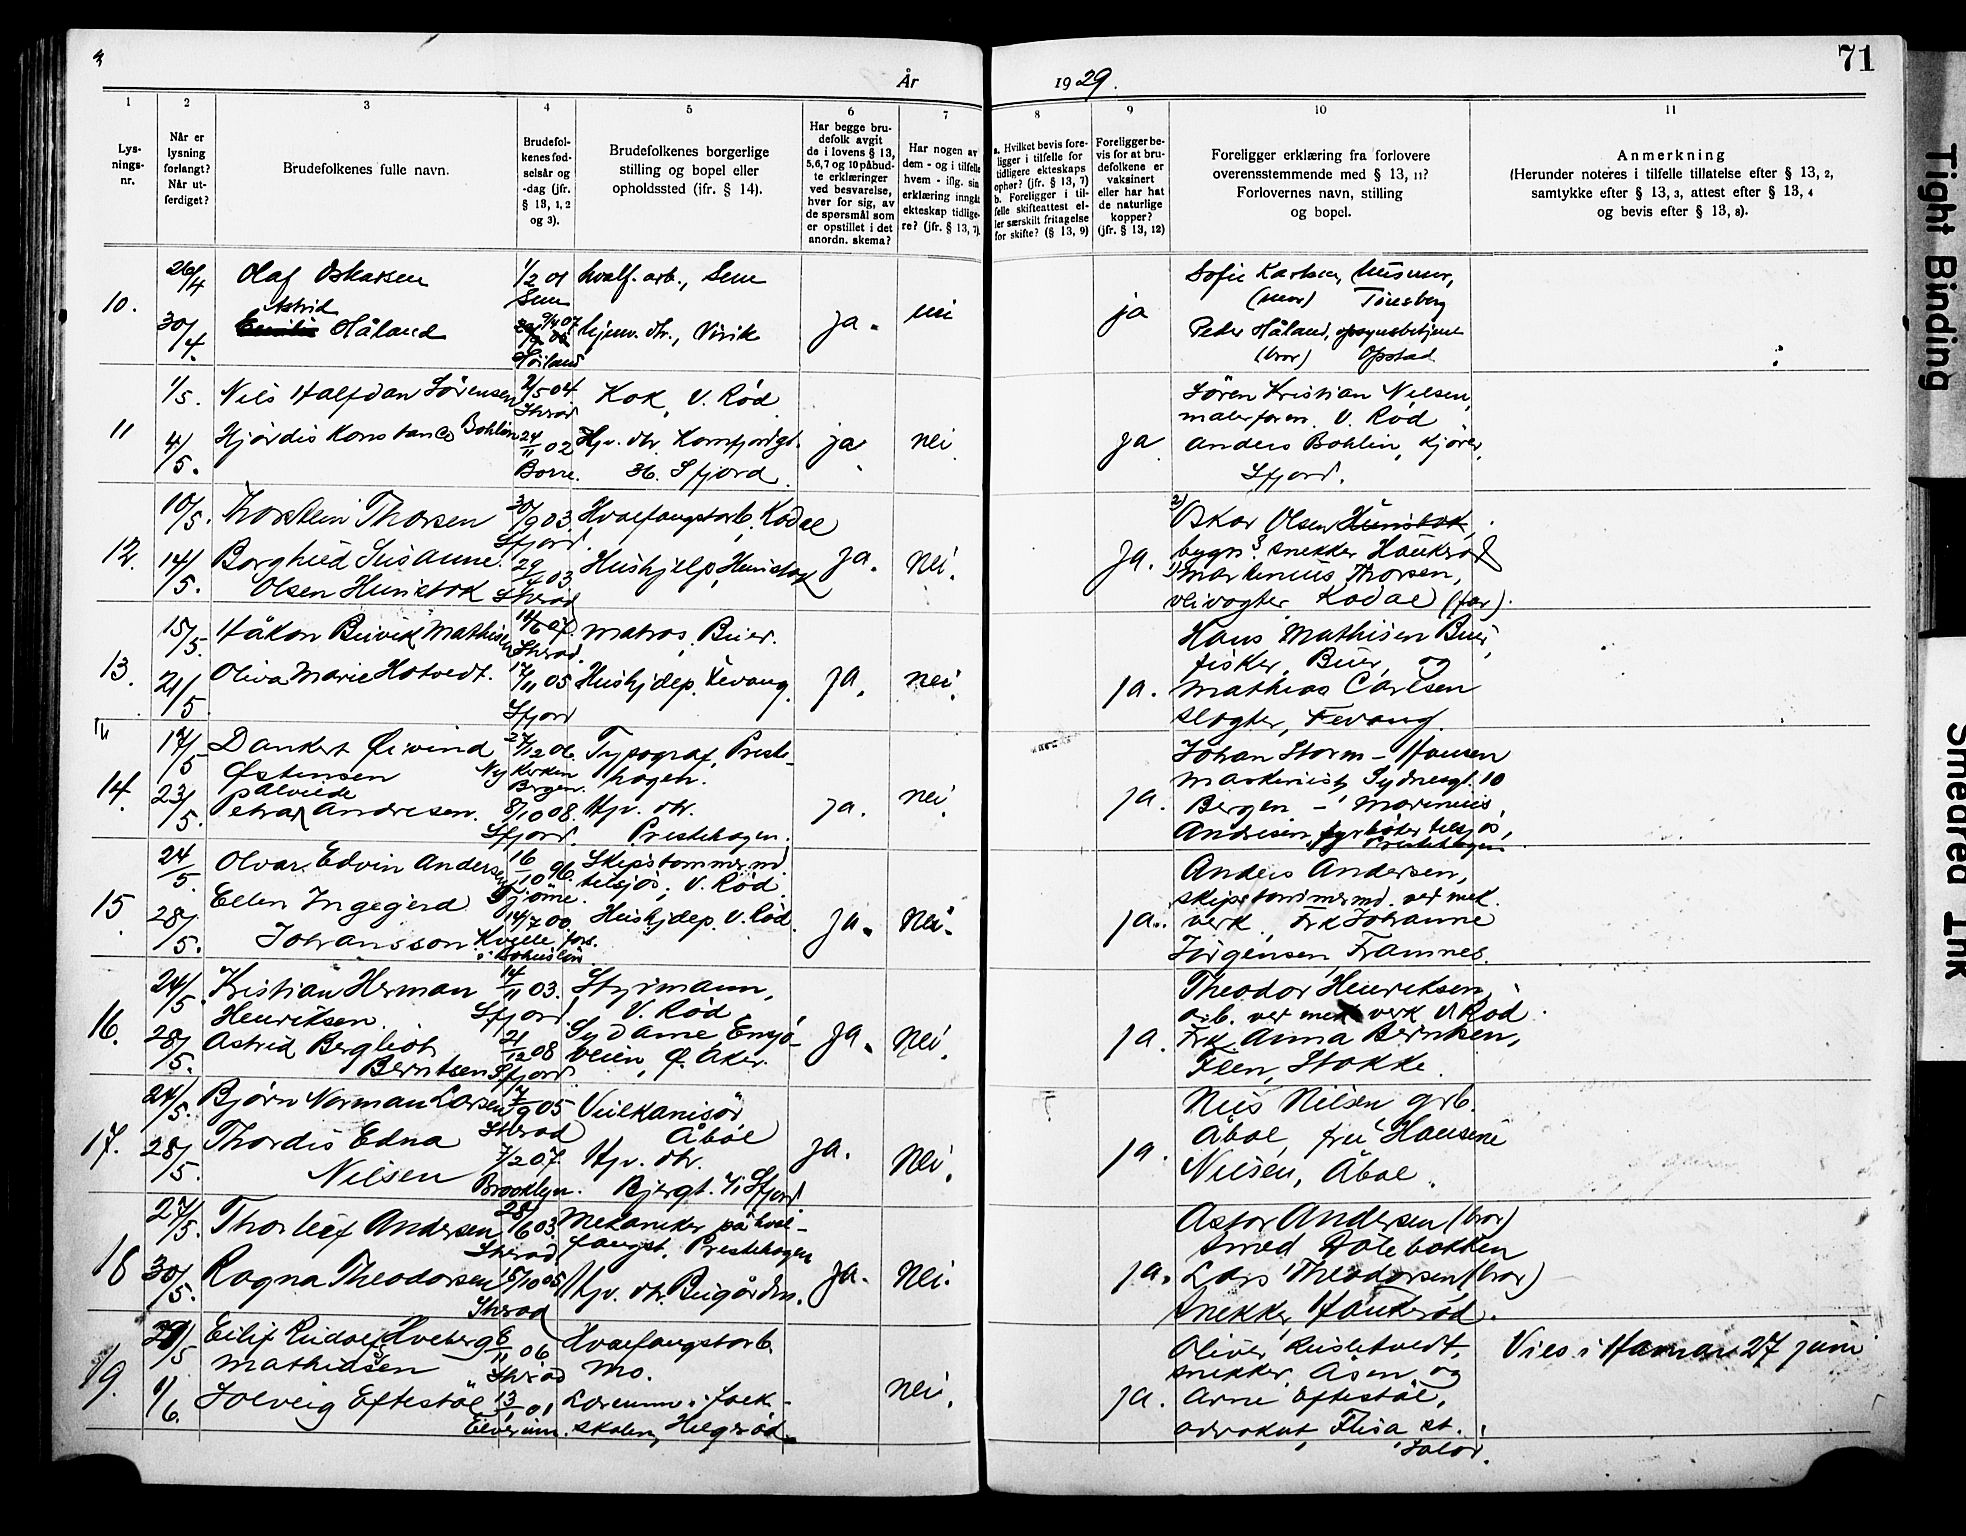 71
År 1929.
1
2
3
4
5
6
7
8
9
10
11
Lys-
nings-
nr.
Når er
lysning
forlangt?
Når ut-
ferdiget?
Brudefolkenes fulle navn.
Brudefol-
kenes fød-
selsår og
-dag (jfr.
§ 13, 1, 2
og 3).
Brudefolkenes borgerlige
stilling og bopel eller
opholdssted (jfr. § 14).
Har begge bru-
defolk avgit
de i lovens § 13,
5,6,7 og 10 påbud-
te erklæringer
ved besvarelse,
hver for sig, av
de spørsmål som
er opstillet i det
anordn. skema?
Har nogen av
dem - og i tilfelle
hvem - iflg. sin
erklæring inngåt
ekteskap tidlige-
re? (jfr. § 13, 7).
a. Hvilket bevis fore-
ligger i tilfelle for
tidligere ekteskaps
ophør? (jfr. § 13, 7)
b. Foreligger i til-
felle skifteattest el-
ler særskilt fritagelse
for skifte? (§ 13, 9)
Foreligger be-
vis for at bru-
defolkene er
vaksinert
eller har hat
de naturlige
kopper?
(jfr. § 13, 12)
Foreligger erklæring fra forlovere
overensstemmende med § 13, 11?
Forlovernes navn, stilling
og bopel.
Anmerkning
(Herunder noteres i tilfelle tillatelse efter § 13, 2,
samtykke efter § 13, 3, attest efter § 13, 4
og bevis efter § 13, 8).
10.
26/4
30/4.
Olaf Oskarsen
Astrid
Håland
1/2 01
Sem
9/4 07
hvalf. arb., Sem
hjemv. dtr., Virik
ja.
nei
ja
Sofie Karlsen, husmor,
(mor) Tönsberg
Peder Håland, opsynsbetjent
(bror) Opstad
11
1/5.
4/5.
Nils Halfdan Sørensen
Hjördis Konstance Bohlin
2/5 04.
Shrød
24/11 02
Borre.
Kok, V. Rød
Hjv. dtr. Kamfjordgt.
36. Sfjord.
ja.
nei
ja
Sören Kristian Nilsen,
malerform. V. Rød
Anders Bohlin, kjører,
Sfjord.
12.
10/5.
14/5.
Thorstein Thorsen
Borghild Susanne
Olsen Hunstok
30/9 03.
Sfjord.
29/4 03
Shrød
Hvalfangstarb. Kodal
Hushjelp, Hunstok
ja.
nei.
ja.
2) Oskar Olsen Hunstok,
bygn.s snekker Haukerød
1) Martinius Thorsen,
veivogter Kodal (far).
13.
15/5.
21/5
Håkon Buvik Mathisen
Oliva Marie Hotvedt.
Shrød.
17/11 05
Sfjord
matros, Buer.
Hushjelp. Fevang.
ja.
nei.
ja.
Hans Mathisen Buer,
fisker, Buer, og
Mathias Carlsen
slagter, Fevang.
14.
17/5
23/5.
Dankert Øivind
Østensen
Petra Alvilde Andresen.
27/12 06
Nykirken
Bergen.
8/10 08.
Sfjord.
Typograf, Preste-
hagen.
Hjv. dtr.
Prestehagen.
ja.
nei.
ja.
Johan Storm-Hansen
maskinist, Sydnesgt. 10
Bergen - Marinius
Andresen, fyrbøter tilsjös,
Prestehagen
15.
24/5.
28/5.
Olvar Edvin Andersen
Ellen Ingegerd
Johansson
16/10 96.
Tjöme.
14/7 00.
Kville fors.
i Bohuslän
Skipstømmermd.
tilsjös, V. Rød.
Hushjelp. V. Rød.
ja.
nei.
ja.
Anders Andersen,
skipstømmermd. ved mek.
verk, Frk Johanne
Jörgensen, Framnes.
16.
24/5.
28/5.
Kristian Herman
Henriksen.
Astrid Bergliot
Berntsen
14/11 03.
Sfjord.
21/12 08
Sfjord.
Styrmann,
V. Rød
Sydame, Ensjö-
veien, Ø. Aker.
ja.
nei.
ja.
Theodor Henriksen,
arb. ved mek verk V. Rød.
Frk. Anna Berntsen,
Feen, Stokke.
17.
24/5.
28/5.
Bjørn Norman Larsen
Thordis Edna
Nilsen
7/9 05
Shrød
7/2 07.
Brooklyn.
Vulkanisör
Åbøl
Hjv. dtr.
Bjergt. 41 Sfjord
ja.
nei.
ja.
Nils Nilsen grb.
Åbøl, fru Hansine
Nilsen, Åbøl.
18
27/5.
30/5.
Thorleif Andersen
Ragna Theodorsen
28/6 03.
Shrød.
15/10 05
Shrød
Mekaniker på hval-
fangst. Prestehagen
Hjv. dtr. Bugården.
ja.
nei.
ja.
Astor Andersen (bror)
smed Dölebakken
Lars Theodorsen (bror)
snekker, Haukerød.
19.
29/5
1/6.
Eilif Rudolf Hveberg
Mathiesen
Solveig Eftestöl
6/11 06
Shrød
13/1 01
Elverum.
Hvalfangstarb.
Mo.
Lærerinne i folk-
skolen, Helgerød.
nei.
ja.
Oliver Rusletvedt,
snekker, Åsen og
Arne Eftestöl,
advokat, Flisa st.
Solör.
Vies i Hamar 27 juni